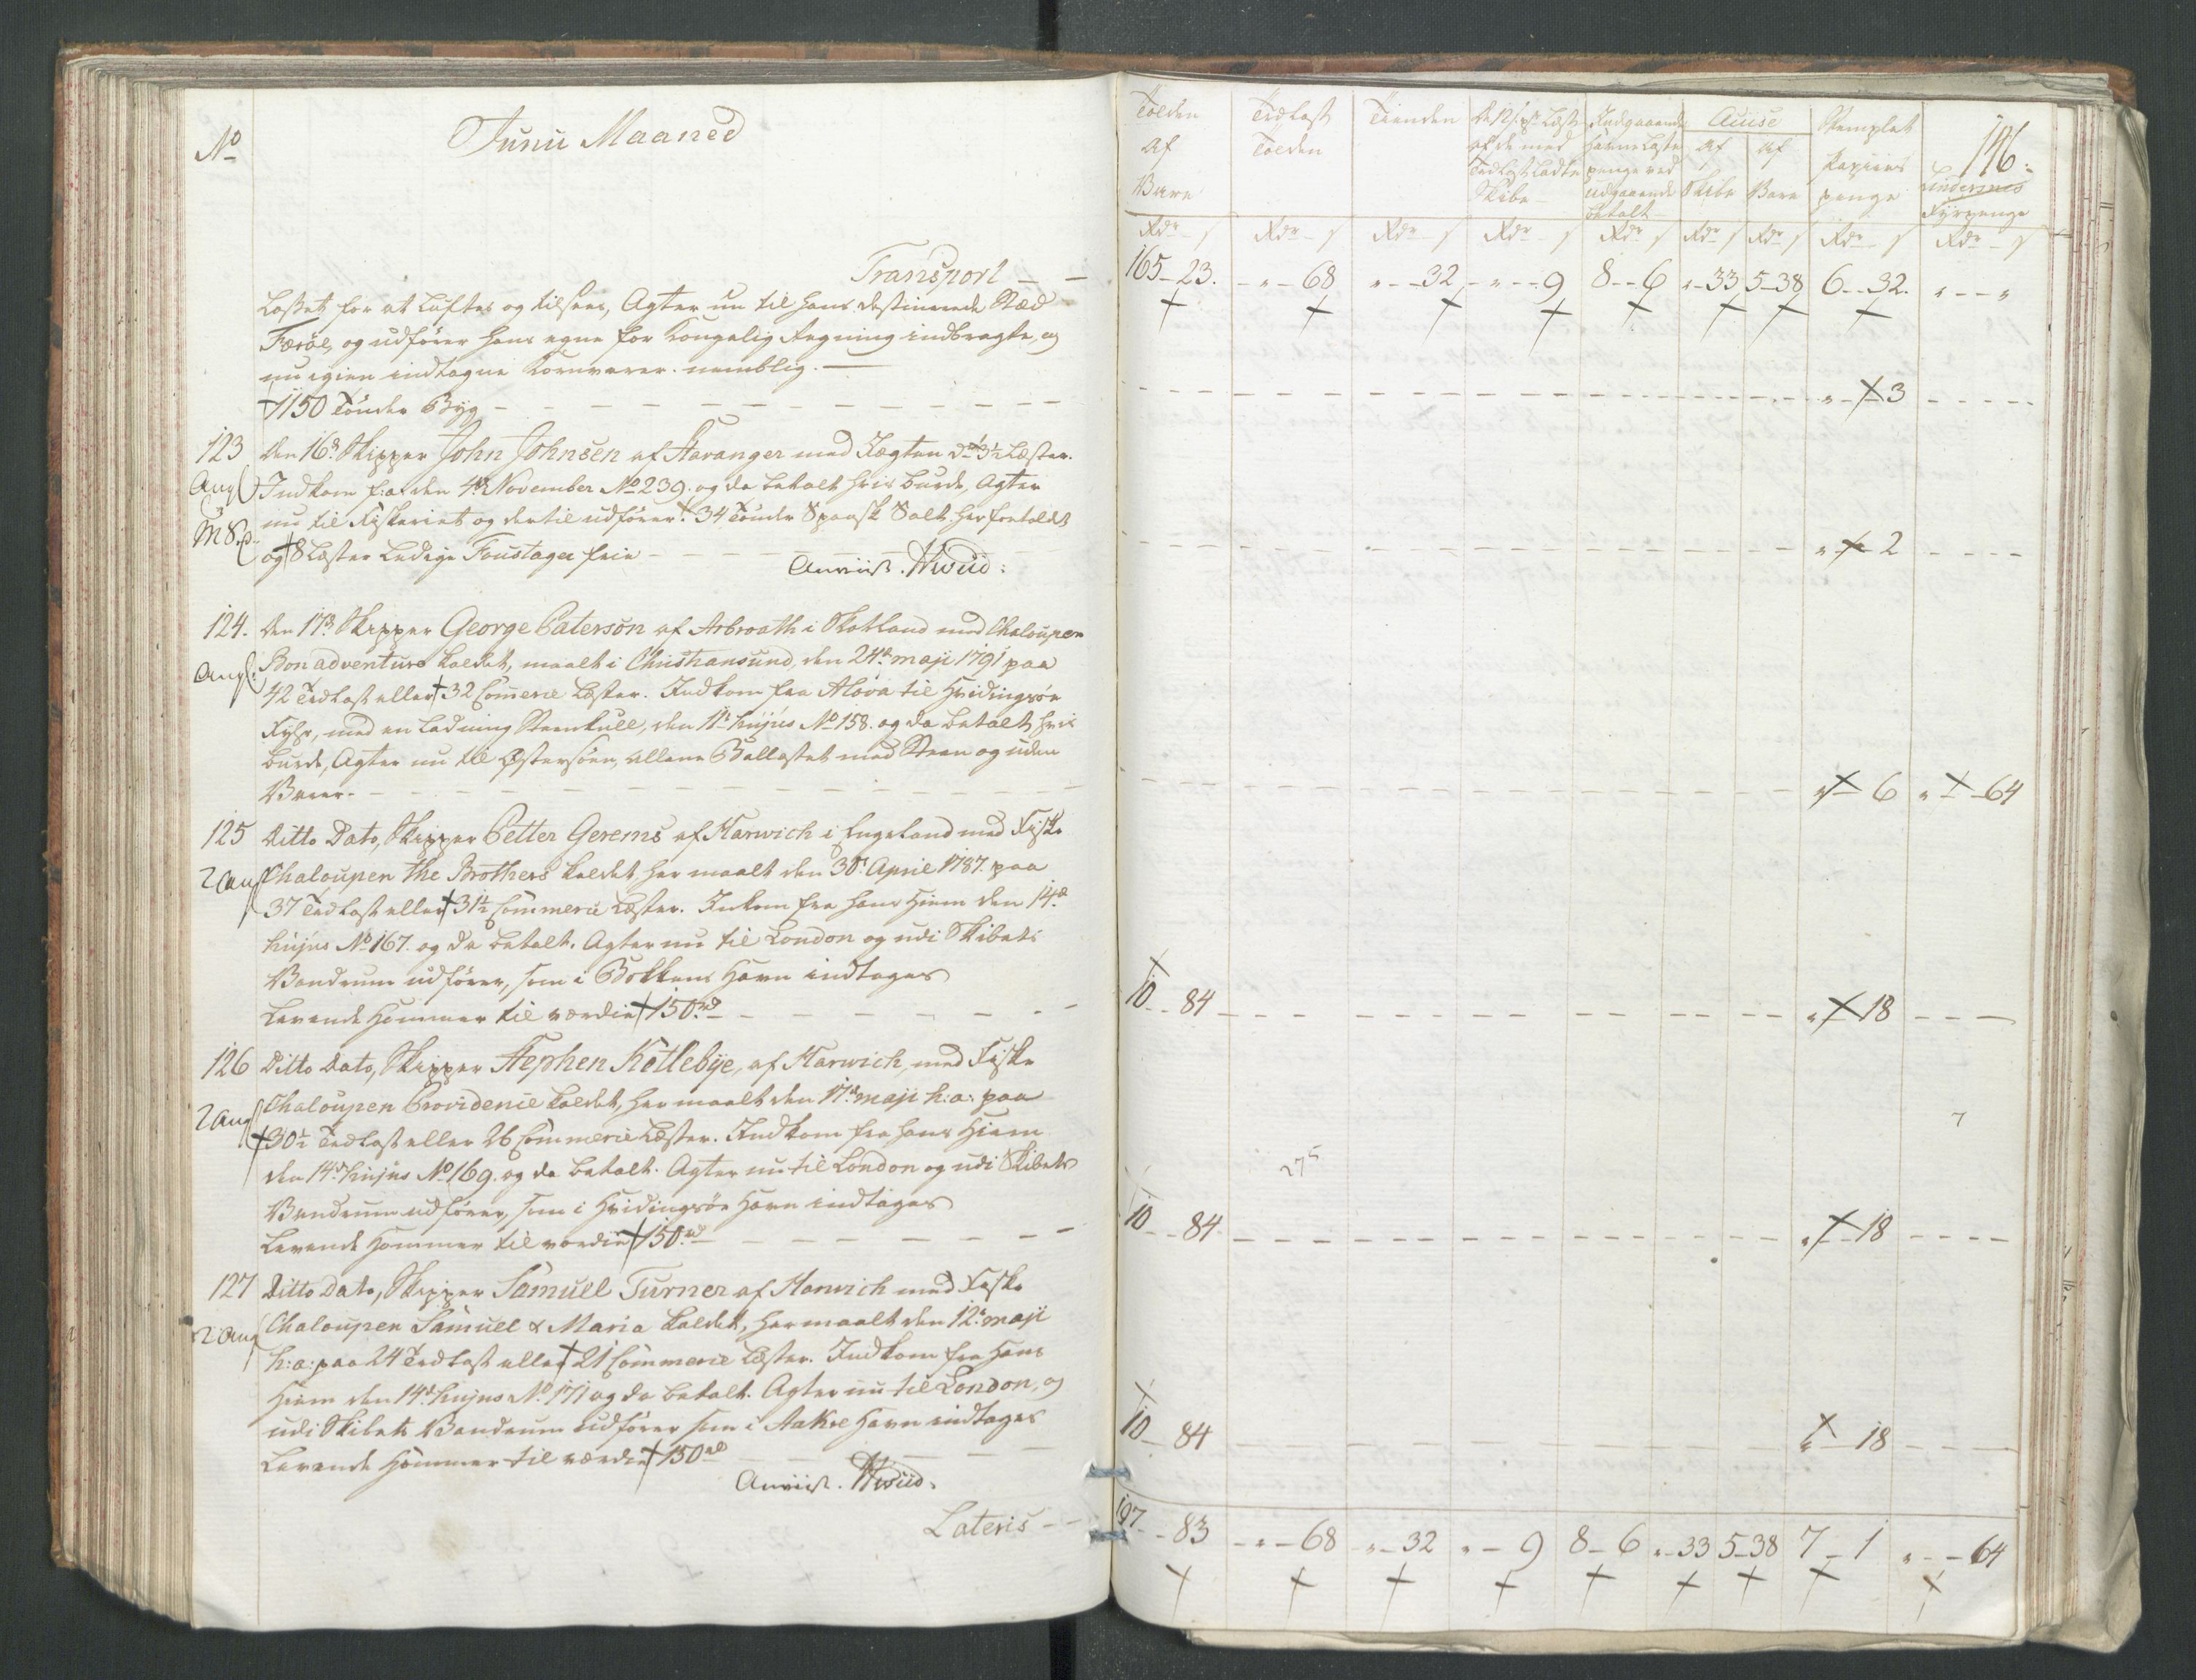 No
Junii Maaned
Transport
Losset for at luftes og tilsees, Agter nu til hans destinerede Stæd
Færöe, og udfører hans egne for Kongelig Regning indbragte, og
nu igien indtagne Kornvarer. nemblig.
1150 Tönder Byg
123 den 16d Skipper John Johnsen af Stavanger med Jægten dr: 3½ Læster.
Indkom f: a: den 4de November No 239. og da betalt hvis burde, Agter
nu til Fiskeriet og dertil udfører. 34 Tönder Spansk Salt her fortoldet
og 8 Læster Ledige Foustager frie
Anviist. HWiid:
124. den 17d Skipper George Paterson af Arbroath i Skotland med Chaloupen
Bonadventure kaldet, maalt i Christiansund, den 24d maji 1791 paa
42 Trælast eller 32 Commerce Læster. Indkom fra Alova til Hvidingsöe
Fyhr, med en Ladning Steenkull, den 11te hujus No 158. og da betalt, hvis
burde, Agter nu til Østersöen, allene Ballastet med Steen og uden
Varer.
125 Ditto Dato, Skipper Petter Gerems af Harwich i Engeland med Fiske
Chaloupen the Brothers kaldet her maalt den 30t April 1787. paa
37 Trælast eller 31½ Commerce Læster. Inkom fra hans Hiem den 14d
hujus No 167. og da betalt. Agter nu til London og udi Skibets
Vandrum udfører, som i Bokkens Havn indtages
Levende Hommer til værdie 150 rd
126 Ditto Dato, Skipper Stephen Kettlebye, af Harwich, med Fiske
Chaloupen Providence kaldet, her maalt den 17d maji h: a: paa
30½ Trælast eller 26 Commerce Læster. Indkom fra hans Hiem
den 14d hujus No 169. og da betalt. Agter nu til London og udi Skibets
Vandrum udfører, som i Hvidingsöe Havn indtages
Levende Hommer til værdie 150 rd
127 Ditto Dato, Skipper Samuell Turner af Harwich med Fiske
Chaloupen Samuel & Maria kaldet, her maalt den 12t maji
h: a: paa 24 Trælast eller 21 Commerce Læster. Indkom fra hans
Hiem den 14d hujus No 171 og da betalt. Agter nu til London, og
udi Skibets Vandrum udfører som i Aakre Havn indtages
Levende Hommer til værdie 150 rd
Anviist. HWiid.
Lateris
146.
Tolden Af Vare
Trælast Tolden
Tienden
Læst af de med Trælast Ladte Skibe
Indgaaende Havne Læste penge ved Udgaaende betalt
Accise
Af Skibe
Af Vare
Stemplet Papiirs penge
Lindernes Fyrpenge
Rdr s Rdr s Rdr s Rdr s Rdr s Rdr s Rdr s Rdr s Rdr s
165 - 23. " - 68 " - 32 " - 9 8 - 6 " - 33 5 - 38 6 - 32. " - "
" - 3
" - 2
" - 6 " - 64
10 - 84 " - 18
7
275
10 - 84 " - 18
10 - 84 " - 18
197 - 83 " - 68 " - 32 " - 9 8 - 6 " - 33 5 - 38 7 - 1 " - 64